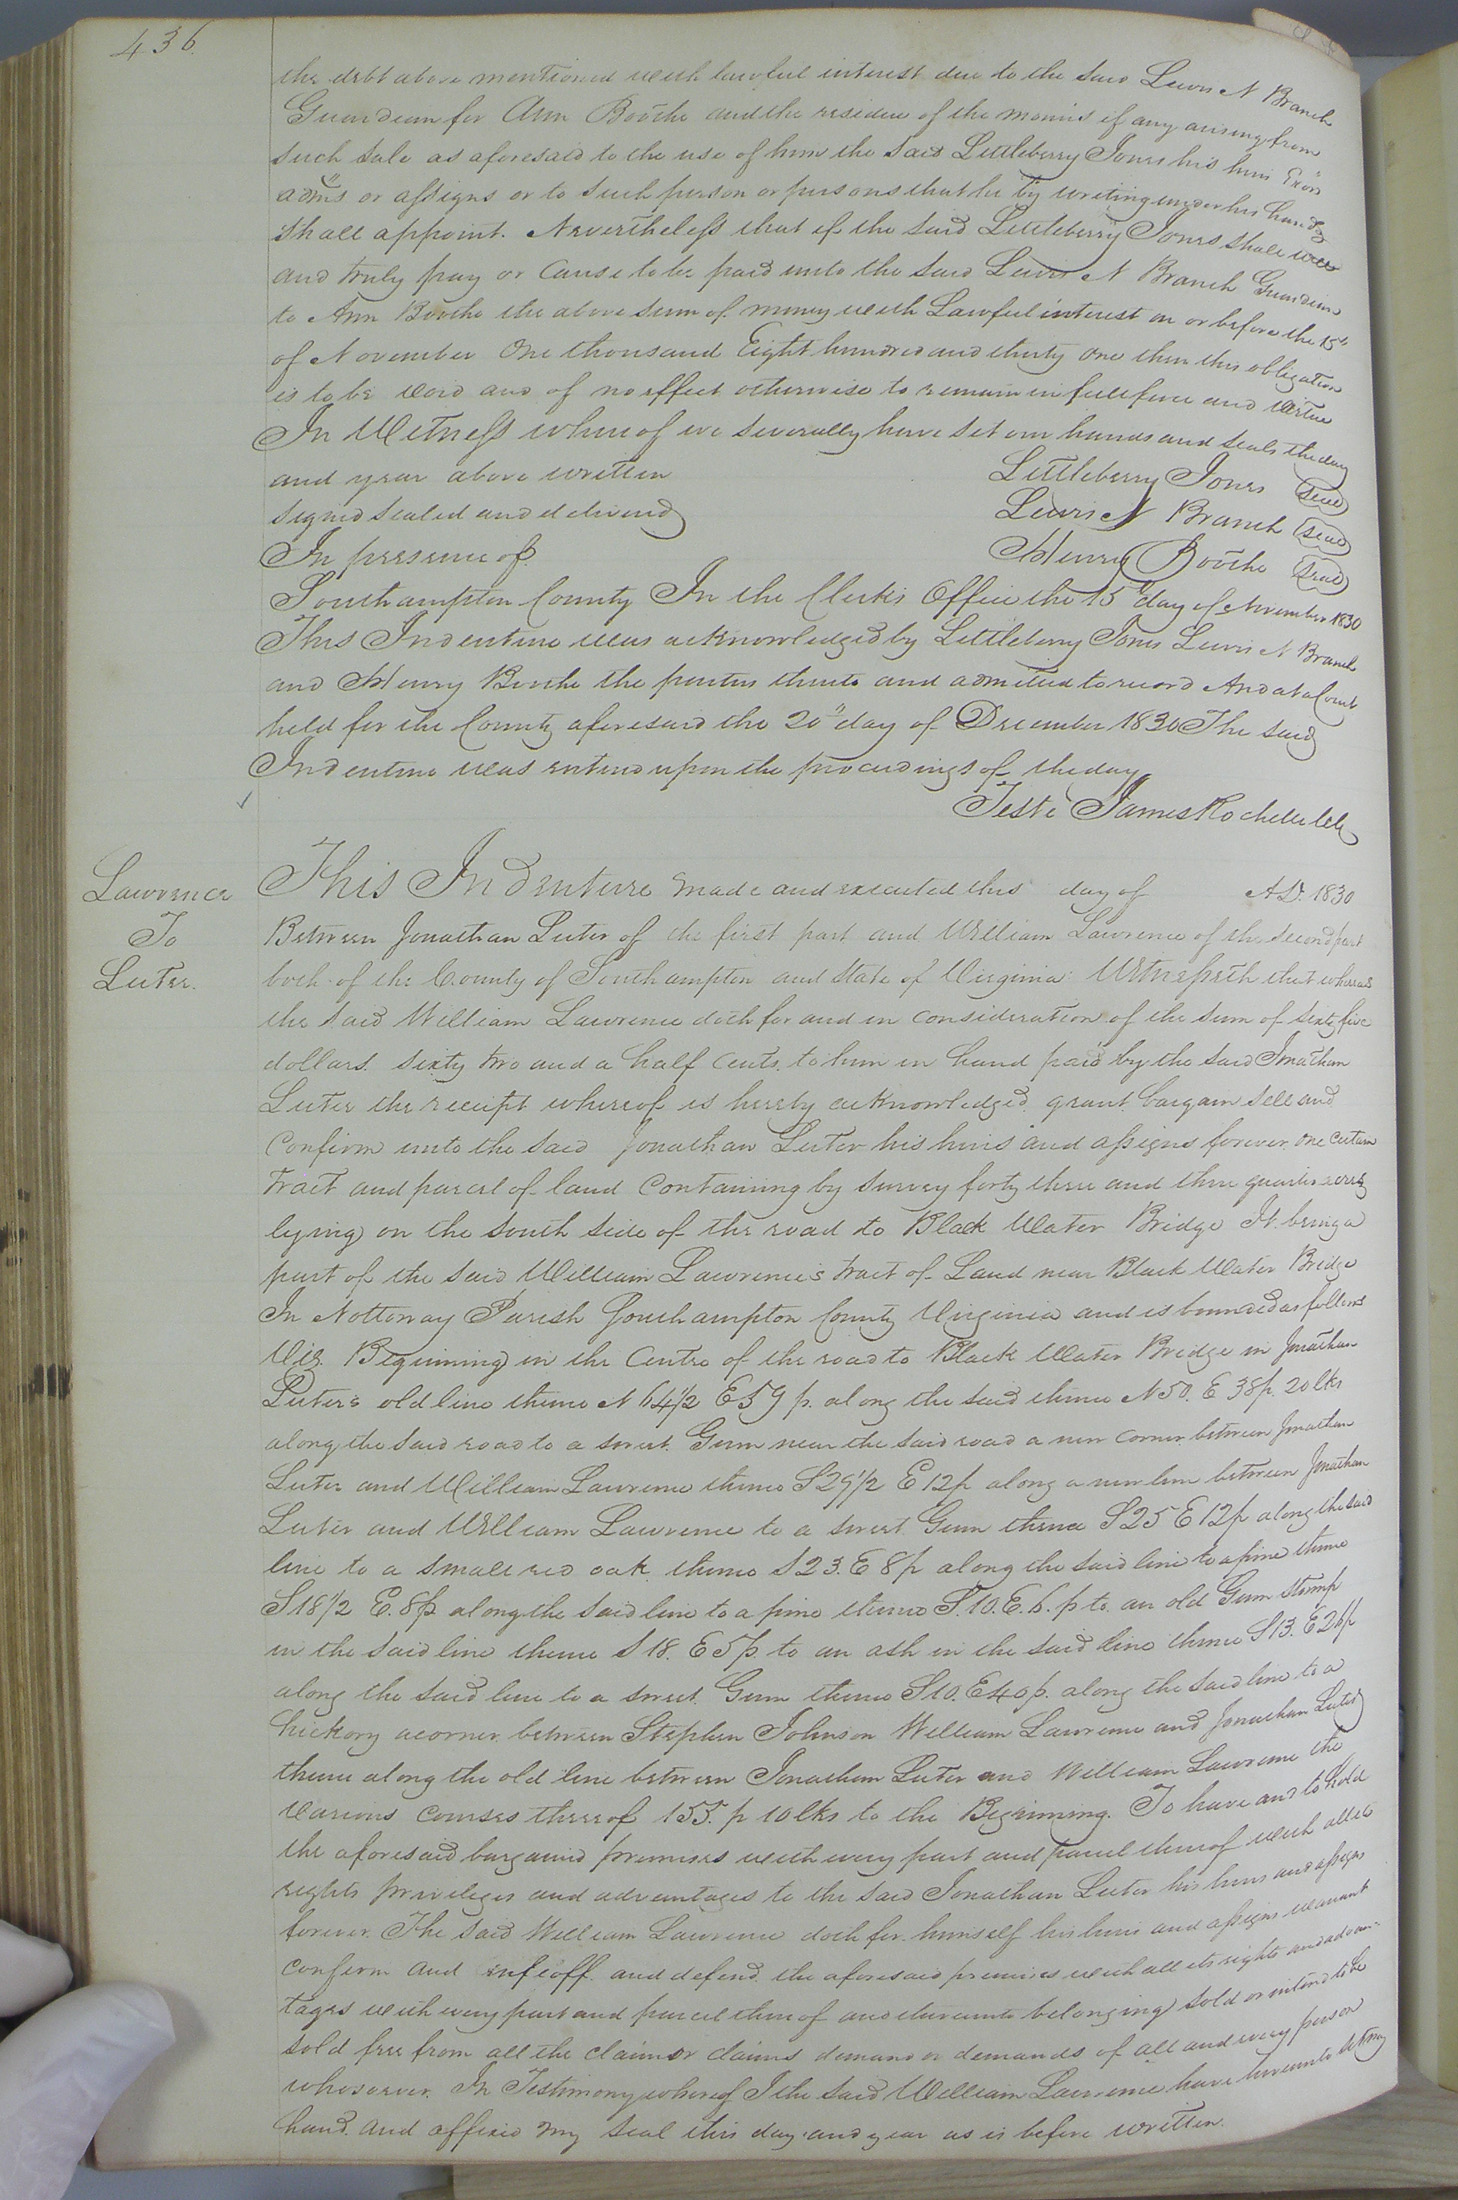 436.
the debt above mentioned with lawful interest due to the said Lewis N Branch
Guardian for Ann Boothe and the residue of the monies if any arising from
such sale as aforesaid to the use of him the said Littleberry Jones his heirs Exors
adms or assigns or to such person or persons that he by writing under his hand
shall appoint. Nevertheless that if the said Littleberry Jones shall well
and truly pay or cause to be paid unto the said Lewis N Branch Guardian
to Ann Boothe the above sum of money with Lawful interest on or before the 15th
of November One thousand Eight hundred and thirty one then this obligation
is to be void and of no effect otherwise to remain in full force and virtue
In Witness whereof we severally have set our hands and seals the day
and year above written Littleberry Jones seal
signed sealed and delivered Lewis N Branch seal
In presence of Henry Boothe seal
Southampton County In the Clerks Office the 15 day of November 1830
This Indenture was acknowledged by Littleberry Jones Lewis N Branch
and Henry Boothe the parties thereto and admitted to record And at a Court
held for the County aforesaid the 20" day of December 1830 The said
Indenture was entered upon the proceedings of the day
Teste James Rochelle Clk
Lawrence
To
Luter.
This Indenture made and executed this day of A.D. 1830
Between Jonathan Luter of the first part and William Lawrence of the second part
both of the County of Southampton and State of Virginia Witnesseth that whereas
the said William Lawrence doth for and in consideration of the sum of sixty five
dollars sixty two and a half cents, to him in hand paid by the said Jonathan
Luter the receipt whereof is hereby acknowledged grant bargain sell and
confirm unto the said Jonathan Luter his heirs and assigns forever one certain
tract and parcel of land containing by survey forty three and three quarter acres
lying on the south side of the road to Black Water Bridge It being a
part of the said William Lawrence's tract of Land near Black Water Bridge
In Nottoway Parish Southampton County Virginia and is bounded as follows
Viz. Beginning in the Centre of the road to Black Water Bridge in Jonathan
Luter's old line thence N 64 1/2 E 59 p. along the said thence N 50. E 38 p. 20 lks
along the said road to a sweet Gum near the said road a new corner between Jonathan
Luter and William Lawrence thence S 29 1/2 E 12 p along a new line between Jonathan
Luter and William Lawrence to a sweet Gum thence S 25 E 12 p along the said
line to a small red oak thence S 23. E 8 p along the said line to a pine thence
S 18 1/2 E. 8 p along the said line to a pine thence S. 10. E. 6. p to an old Gum stump
in the said line thence S 18. E 5 p. to an ash in the said line thence S 13. E 26 p
along the said line to a sweet Gum thence S 10. E 40 p. along the said line to a
hickory a corner between Stephen Johnson William Lawrence and Jonathan Luter
thence along the old line between Jonathan Luter and William Lawrence the
various courses thereof 155. p 10 lks to the Beginning. To have and to hold
the aforesaid bargained premises with every part and parcel thereof with all its
rights privileges and advantages to the said Jonathan Luter his heirs and assigns
forever. The said William Lawrence doth for himself his heirs and assigns warrant
confirm and infeoff and defend the aforesaid premises with all its rights and advan-
tages with every part and parcel thereof and thereunto belonging sold or intend to be
sold free from all the claim or claims demand or demands of all and every person
whosoever. In Testimony whereof I the said William Lawrence have hereunto set my
hand and affixed my seal this day and year as is before written.